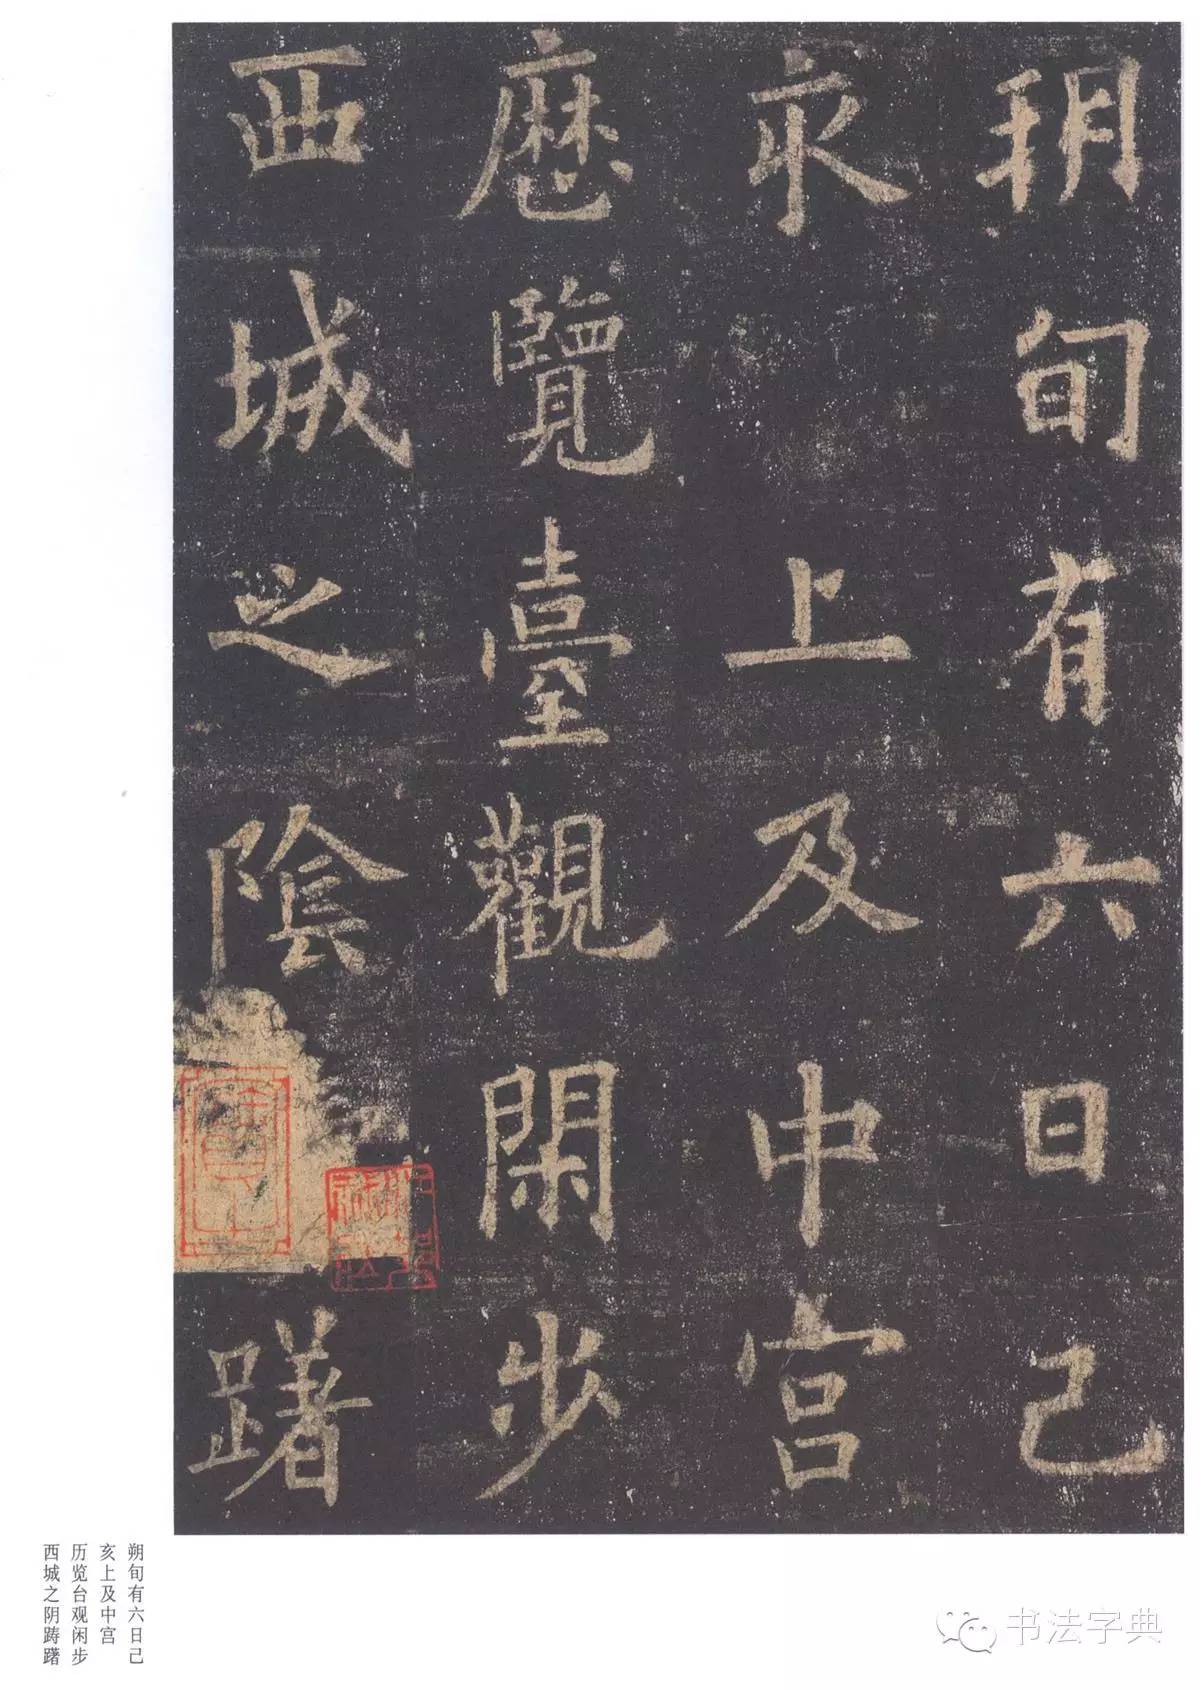 朔旬有六日己
亥上及中宫
歷覽臺觀閑步
西城之陰躇
朔旬有六日己
亥上及中宫
历览台观闲步
西城之阴踌躇
书法字典